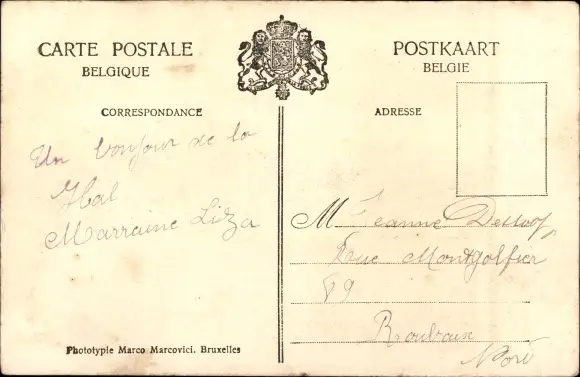 CARTE POSTALE
BELGIQUE
POSTKAART
BELGIE
CORRESPONDANCE
ADRESSE
Un bonjour de la
Hal
Marraine Liza
Mlle Jeanne
Rue Montgolfier
89
Roubaix
Nord
Phototypie Marco Marcovici. Bruxelles